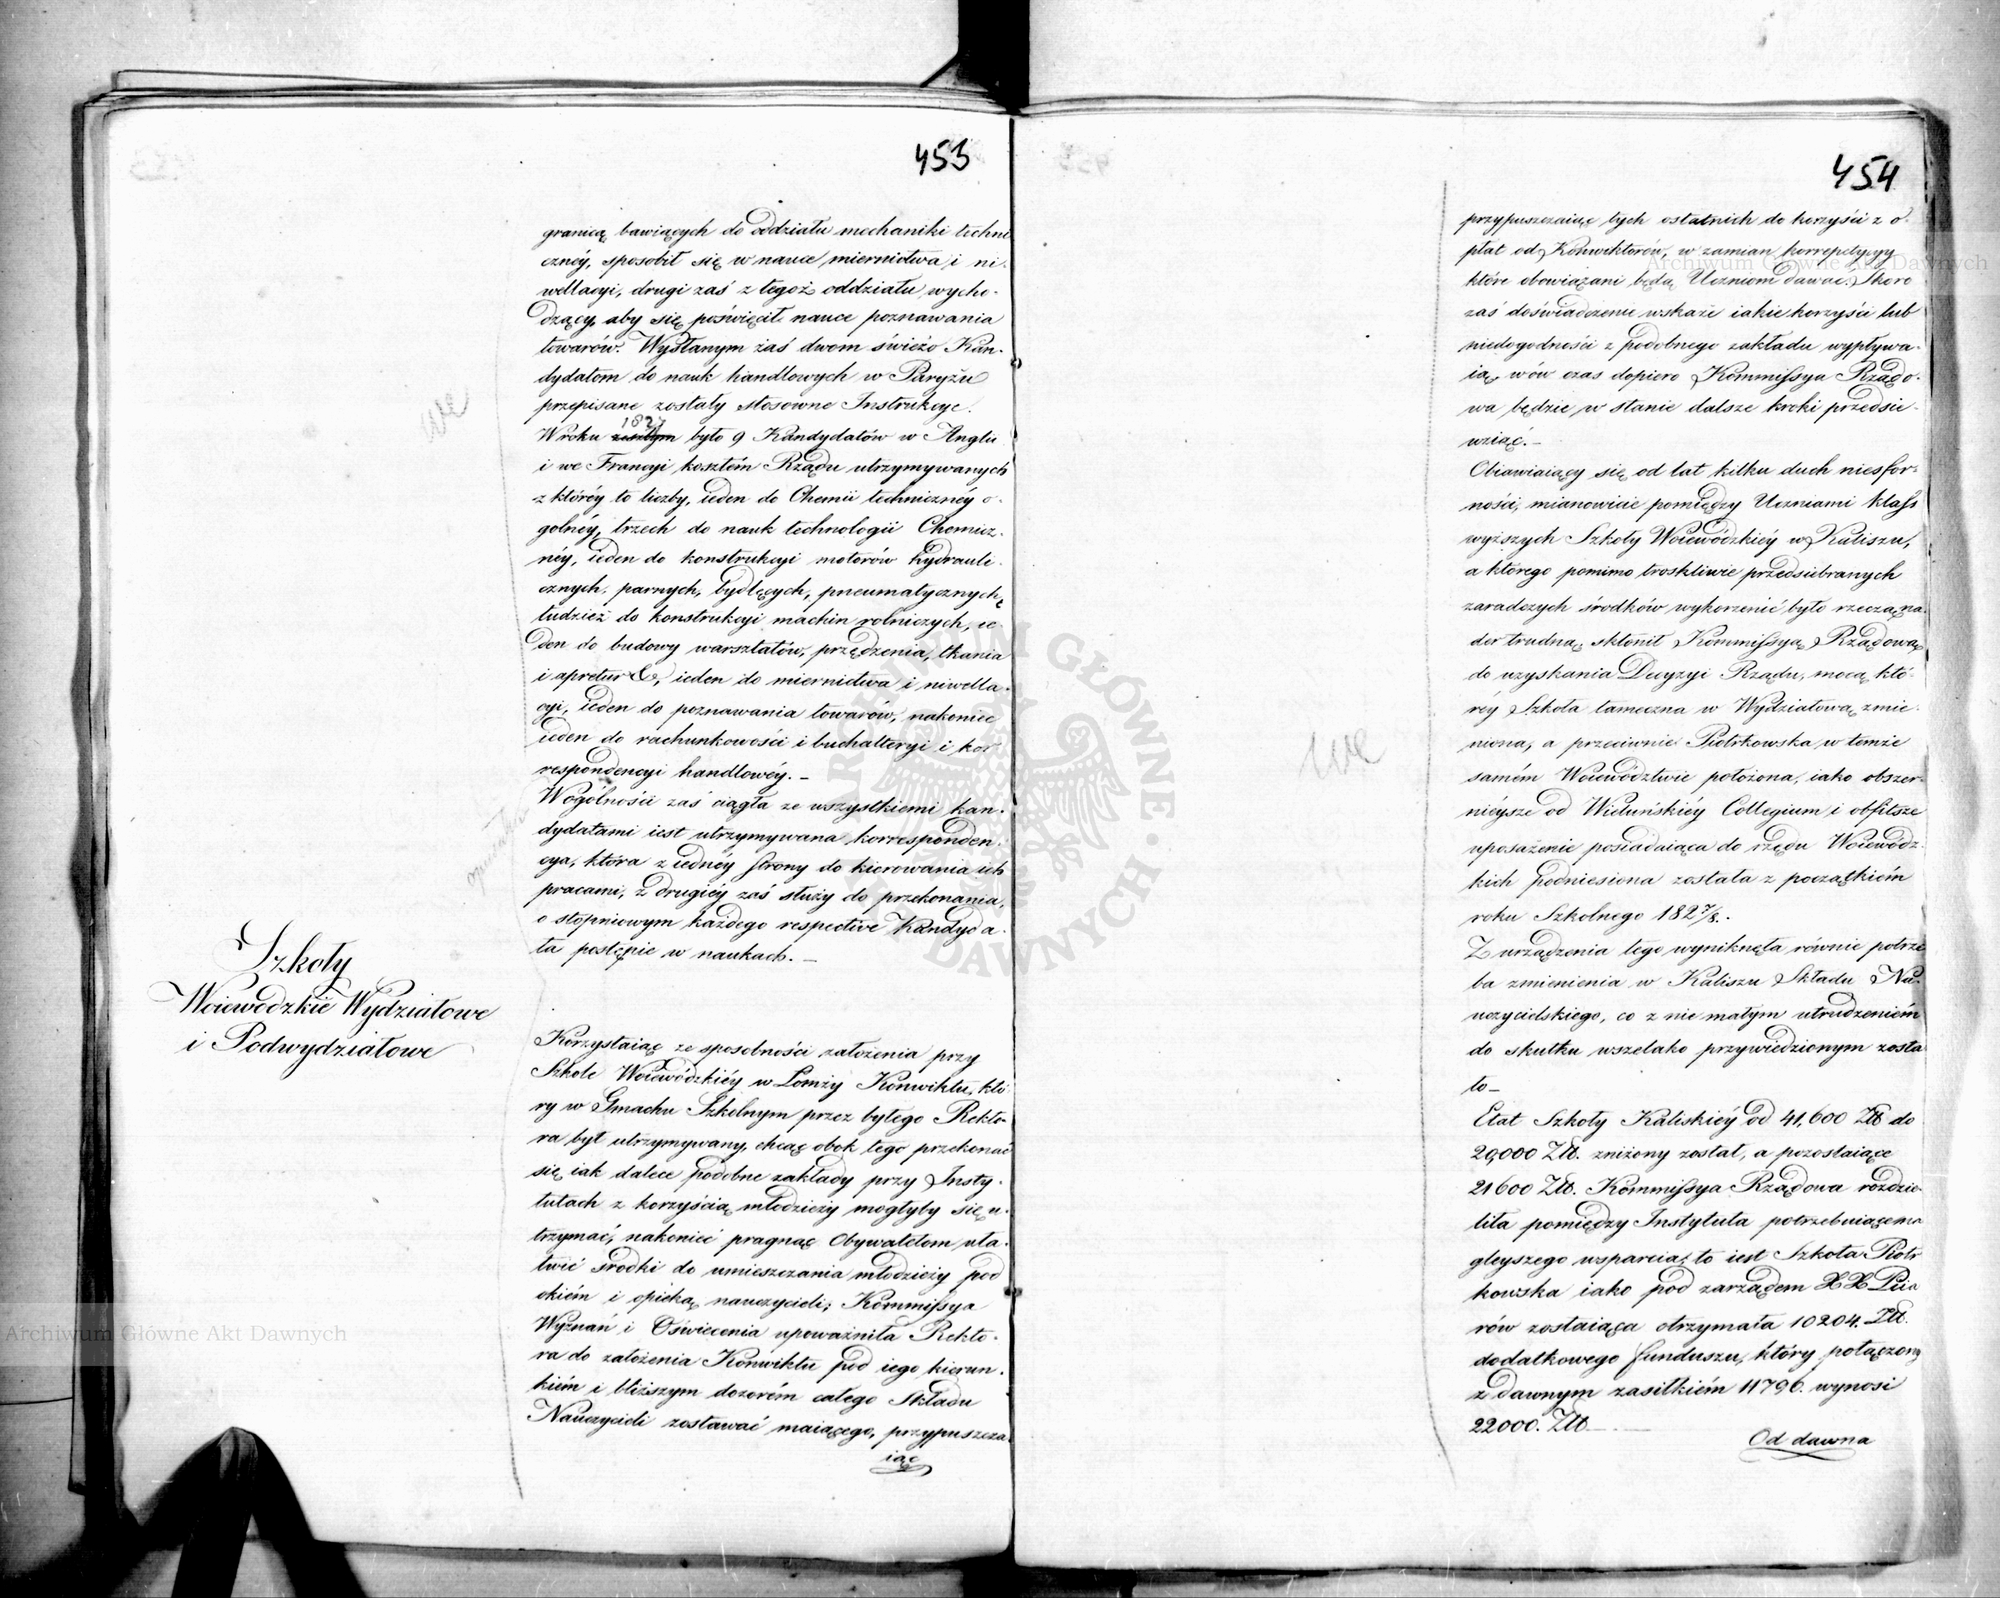 453
granicą bawiących do oddziału mechaniki techni
cznéy, sposobił się w nauce miernictwa i ni-
wellacyi, drugi zaś z tegoż oddziału wycho-
dzący, aby się poświęcił nauce poznawania
towarów. Wysłanym zaś dwom świeżo Kan-
dydatom do nauk handlowych w Paryżu
przepisane zostały stosowne Instrukcye.
W roku 1827 było 9 Kandydatów w Anglii
i we Francyi kosztem Rządu utrzymywanych
z któréy to liczby, ieden do Chemii techniczney o-
golnéy, trzech do nauk technologii Chemicz-
néy, ieden do konstrukcyi motorów hydrauli-
cznych, parnych, bydlęcych, pneumatycznych,
tudzież do konstrukcyi machin rolniczych, ie
den do budowy warsztatów, przędzenia, tkania
i apretur &, ieden do miernictwa i niwella-
cyi, ieden do poznawania towarów, nakoniec
ieden do rachunkowości i buchalteryi i kor
respondencyi handlowéy. –
Wogólności zaś ciągła ze wszystkiemi kan-
dydatami iest utrzymywana korresponden-
cya, która z iednéy strony do kierowania ich
pracami, z drugiéy zaś służy do przekonania,
o stopniowym każdego respective Kandyda-
ta postępie w naukach. –
Szkoły
Woiewodzkie Wydziałowe
i Podwydziałowe
Korzystaiąc ze sposobności założenia przy
Szkole Woiewódzkiéy w Łomży Konwiktu, któ
ry w Gmachu Szkolnym przez byłego Rekto-
ra był utrzymywany, chcąc obok tego przekonać
się iak dalece podobne zakłady przy Insty-
tutach z korzyścią młodzieży mogłyby się u-
trzymać, nakoniec pragnąc Obywatelom uła-
twić środki do umieszczania młodzieży pod
okiem i opieką nauczycieli; Kommissya
Wyznań i Oświecenia upoważniła Rekto-
ra do założenia Konwiktu pod iego kierun-
kiem i bliższym dozorem całego Składu
Nauczycieli zostawać maiącego, przypuszcza
iąc
454
przypuszczaiąc tych ostatnich do korzyści z o-
płat od Konwiktorów, w zamian korrepetycyy
które obowiązani będą Uczniom dawać. Skoro
zaś doświadczenie wskaże iakie korzyści lub
niedogodności z podobnego zakładu wypływa-
ią, wów czas dopiero Kommissya Rządo-
wa będzie w stanie dalsze kroki przedsie-
wziąć. –
Obiawiaiący się od lat kilku duch niesfor-
ności, mianowicie pomiędzy Uczniami klass
wyższych Szkoły Woiewódzkiéy w Kaliszu,
a którego pomimo troskliwie przedsiebranych
zaradczych środków wykorzenić było rzeczą na
der trudną, skłonił Kommissyą Rządową
do uzyskania Decyzyi Rządu, mocą któ-
réy Szkoła tameczna w Wydziałową zmie-
niona, a przeciwnie Piotrkowska w temże
samém Woiewództwie położona, iako obszer-
niéysze od Wieluńskiéy Collegium i obfitsze
uposażenie posiadaiąca do rzędu Woiewódz-
kich podniesiona została z początkiém
roku Szkolnego 1827/8. –
Z urządzenia tego wyniknęła równie potrze
ba zmienienia w Kaliszu Składu Na-
uczycielskiego, co z nie małym utrudzeniém
do skutku wszelako przywiedzionym zosta
ło –
Etat Szkoły Kaliskiéy od 41,600 Złt do
20,000 Złt. zniżony został, a pozostaiące
21600 Złt. Kommissya Rządowa rozdzie-
liła pomiędzy Instytuta potrzebuiącema
gleyszego wsparcia, to iest Szkoła Piotr
kowska iako pod zarządem XX Piia
rów zostaiąca otrzymała 10204. Złt.
dodatkowego funduszu, który połączony
z dawnym zasiłkiém 11796. wynosi
22000. Złt –
Od dawna